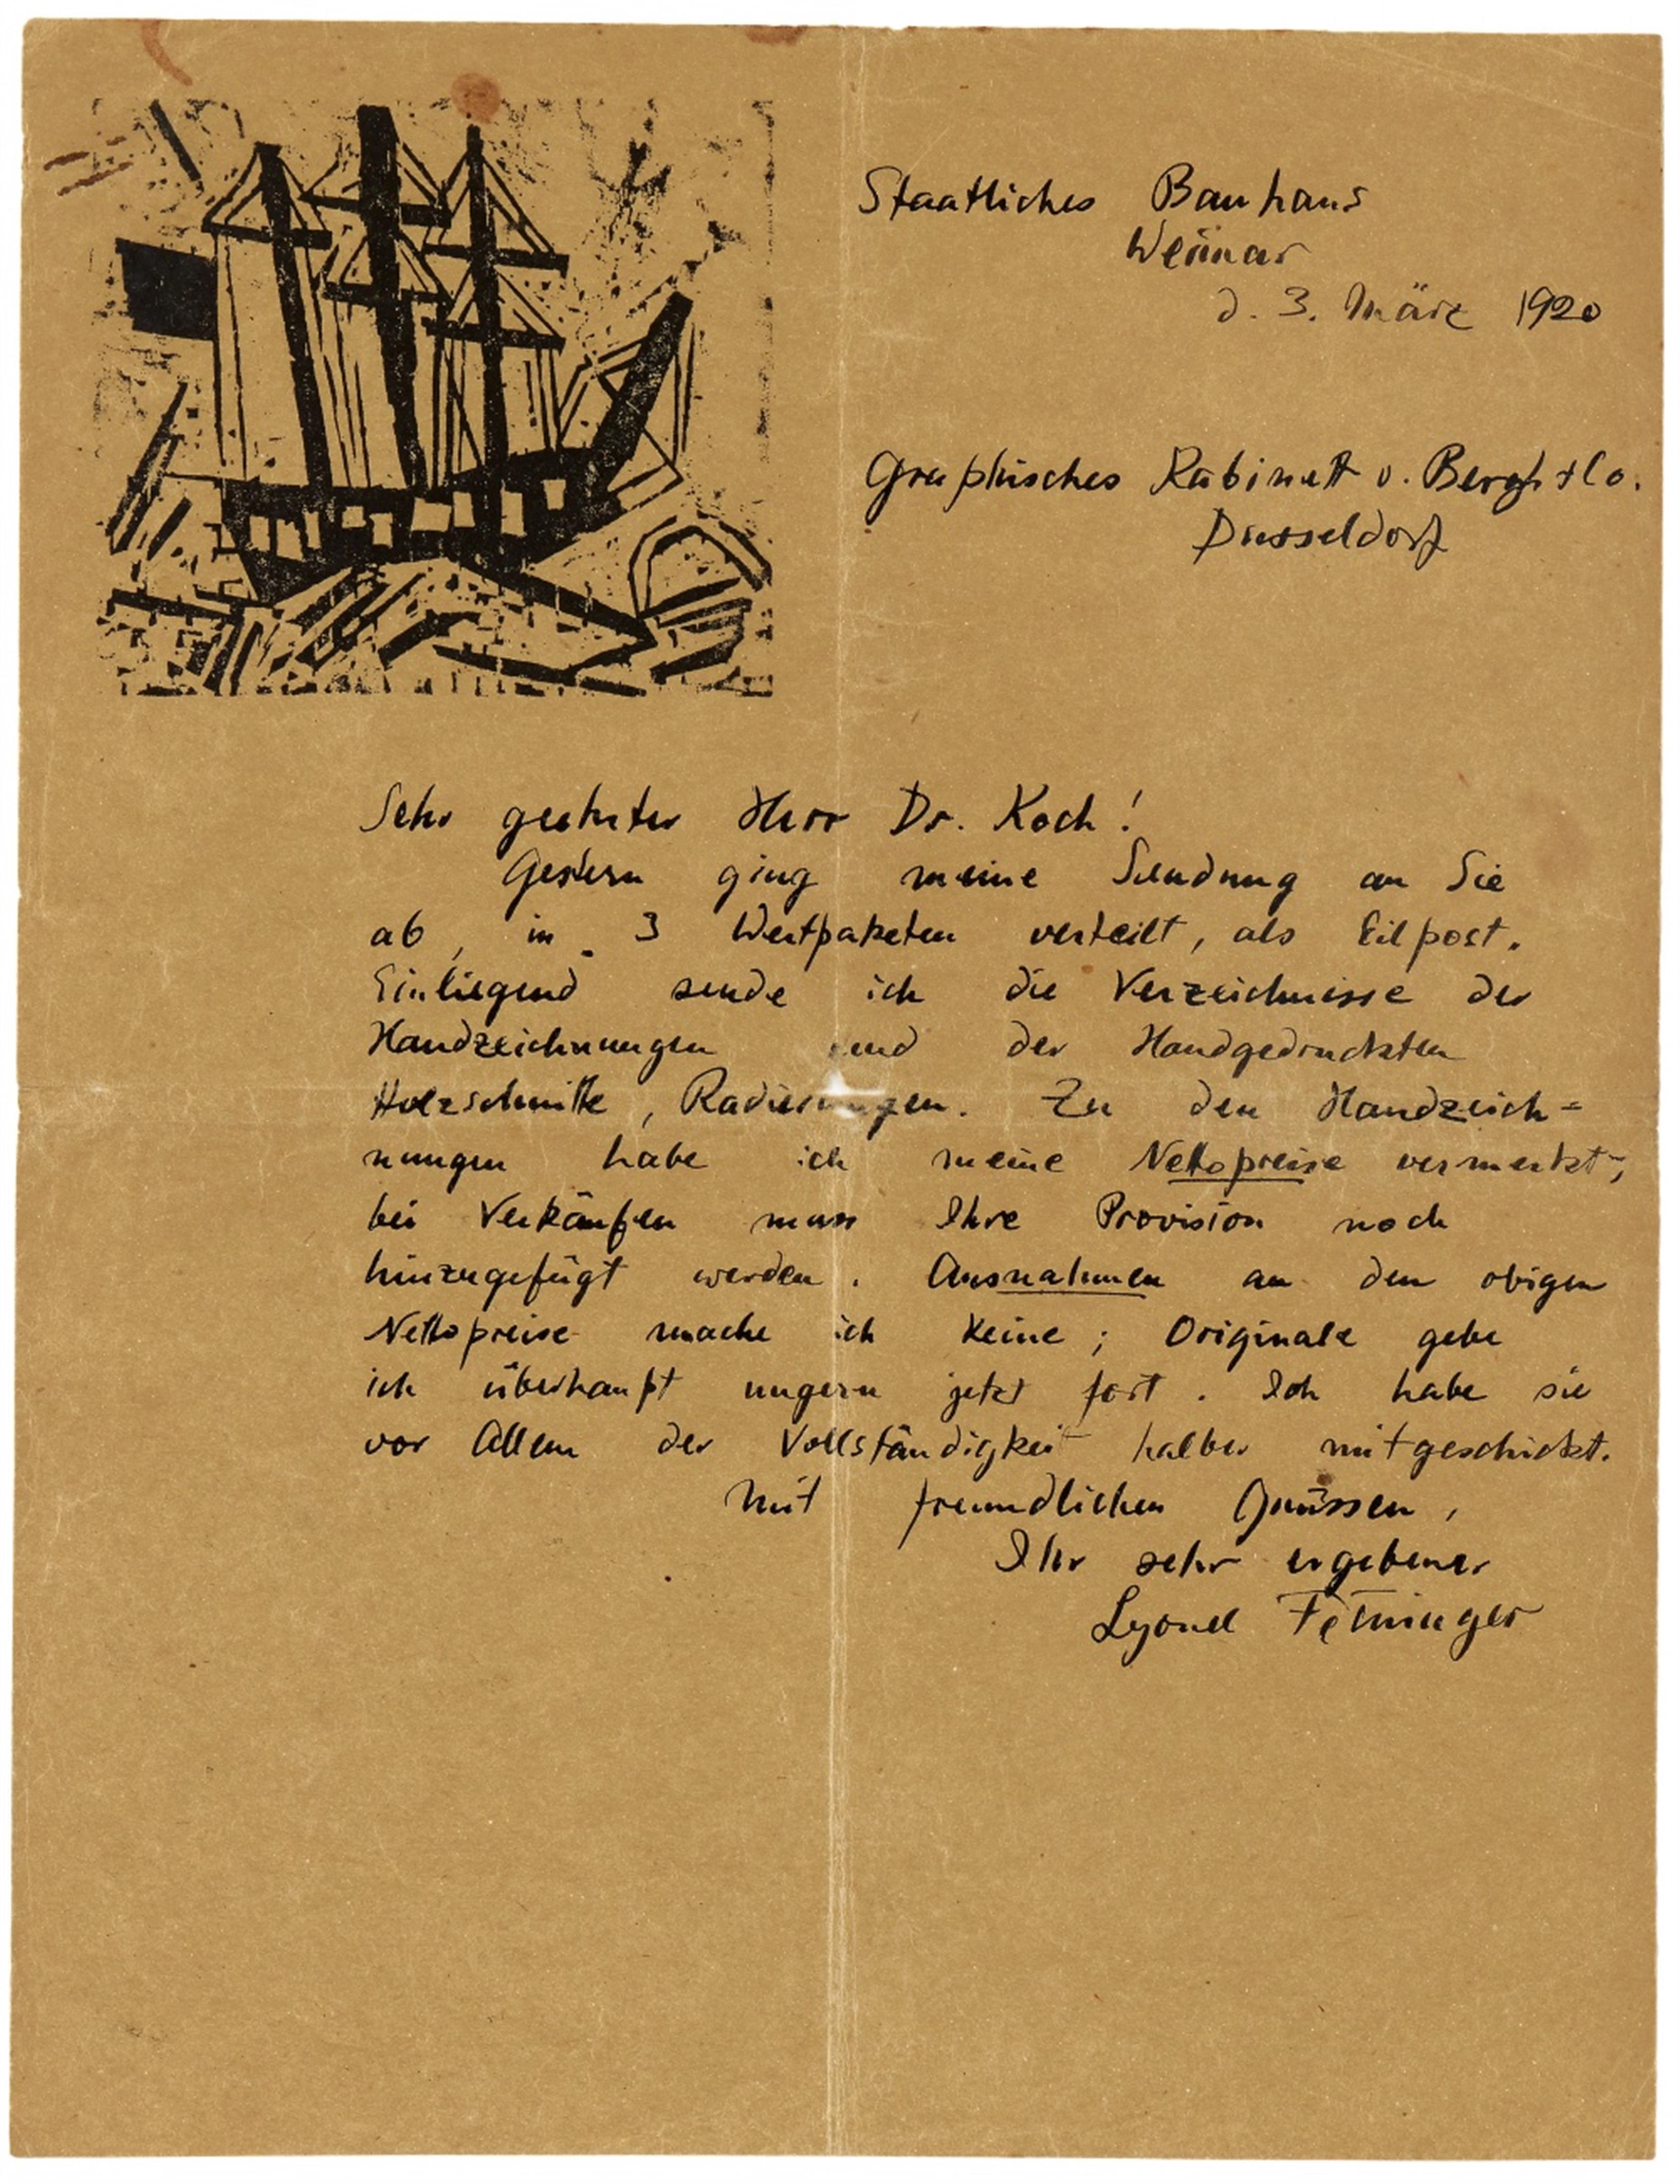 Staatliches Bauhaus
Weimar
d. 3. März 1920
Graphisches Kabinett v. Bergh + Co.
Düsseldorf
Sehr geehrter Herr Dr. Koch!
Gestern ging meine Sendung an Sie
ab, in 3 Wertpaketen verteilt, als Eilpost.
Einliegend sende ich die Verzeichnisse der
Handzeichnungen und der Handgedruckten
Holzschnitte, Radierungen. Zu den Handzeich=
nungen habe ich meine Nettopreise vermerkt;
bei Verkäufen muss Ihre Provision noch
hinzugefügt werden. Ausnahmen an den obigen
Nettopreise mache ich keine; Originale gebe
ich überhaupt ungern jetzt fort. Ich habe sie
vor Allem der Vollständigkeit halber mitgeschickt.
Mit freundlichen Grüssen,
Ihr sehr ergebener
Lyonel Feininger